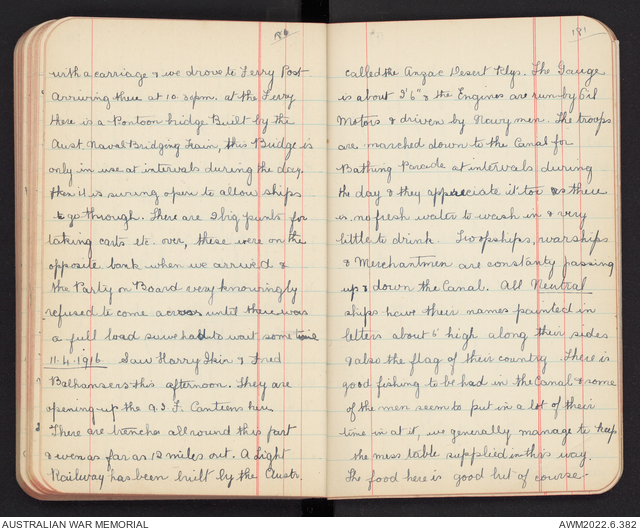 181
with a carriage & we drove to Ferry Post
Arriving there at 10.30pm. at the Ferry
there is a Pontoon bridge Built by the
Aust. Naval Bridging Train, this Bridge is
only in use at intervals during the day.
then it is swung open to allow ships
to go through. There are 2 big punts for
taking carts etc. over, these were on the
opposite bank when we arrived &
the Party on Board very
refused to come across until there was
a full load so we had to wait some time
11.4.1916 Saw Harry & Fred
this afternoon. They are
opening up the A.I.F. Canteens here
There are trenches all round this part
& even as far as 12 miles out. A Light
Railway has been built by the Austr.
called the Anzac Desert Rlys. The Gauge
is about 2'6" & the Engines are run by Oil
Motors & driven by Navvymen. The troops
are marched down to the Canal for
Bathing Parade at intervals during
the day & they appreciate it too as there
is no fresh water to wash in & very
little to drink. Troopships, warships
& Merchantmen are constanty passing
up & down the Canal. All Neutral
ships have their names painted in
letters about 6' high along their sides
& also the flag of their country. There is
good fishing to be had in the Canal & some
of the men seem to put in a lot of their
time in at it, we generally manage to keep
the mess table supplied in this way.
The food here is good but of course
AUSTRALIAN WAR MEMORIAL
AWM2022.6.382